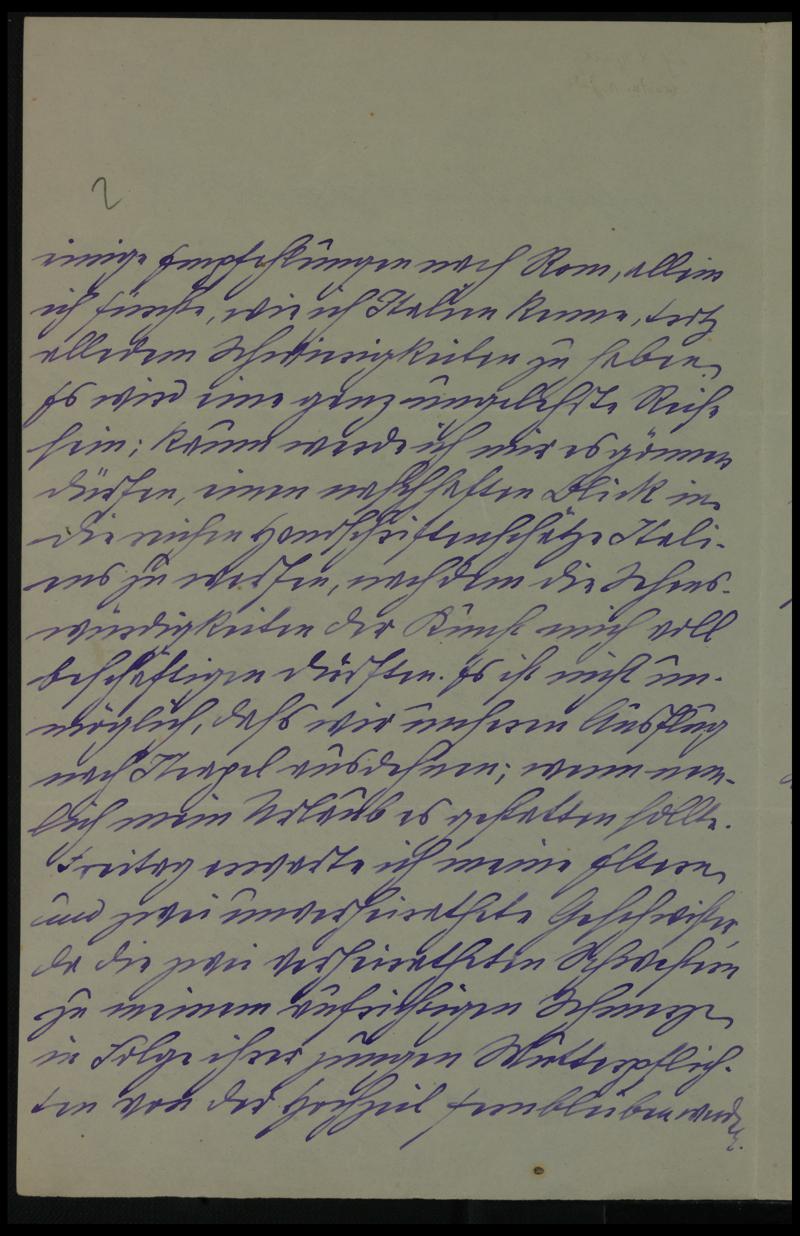 2
einige Empfehlungen nach Rom, allein
ich fürchte, wie ich Italien kenne, trotz
alledem Schwierigkeiten zu haben.
Es wird eine ganz ungelehrte Reise
sein; kaum werde ich mir es gönnen
dürfen, einen naschhaften Blick in
die reichen Handschriftenschätze Itali-
ens zu werfen, nachdem die Sehens-
würdigkeiten der Kunst mich voll
beschäftigen dürften. Es ist nicht un-
möglich, dass wir unseren Ausflug
nach Neapel ausdehnen; wenn nem-
lich mein Urlaub es gestatten sollte.
Freitag erwarte ich meine Eltern
und zwei unverheirathete Geschwister,
da die zwei verheiratheten Schwestern
zu meinem aufrichtigen Schmerze
in Folge ihrer jungen Mutterpflich-
ten von der Hochzeit fernbleiben werden.